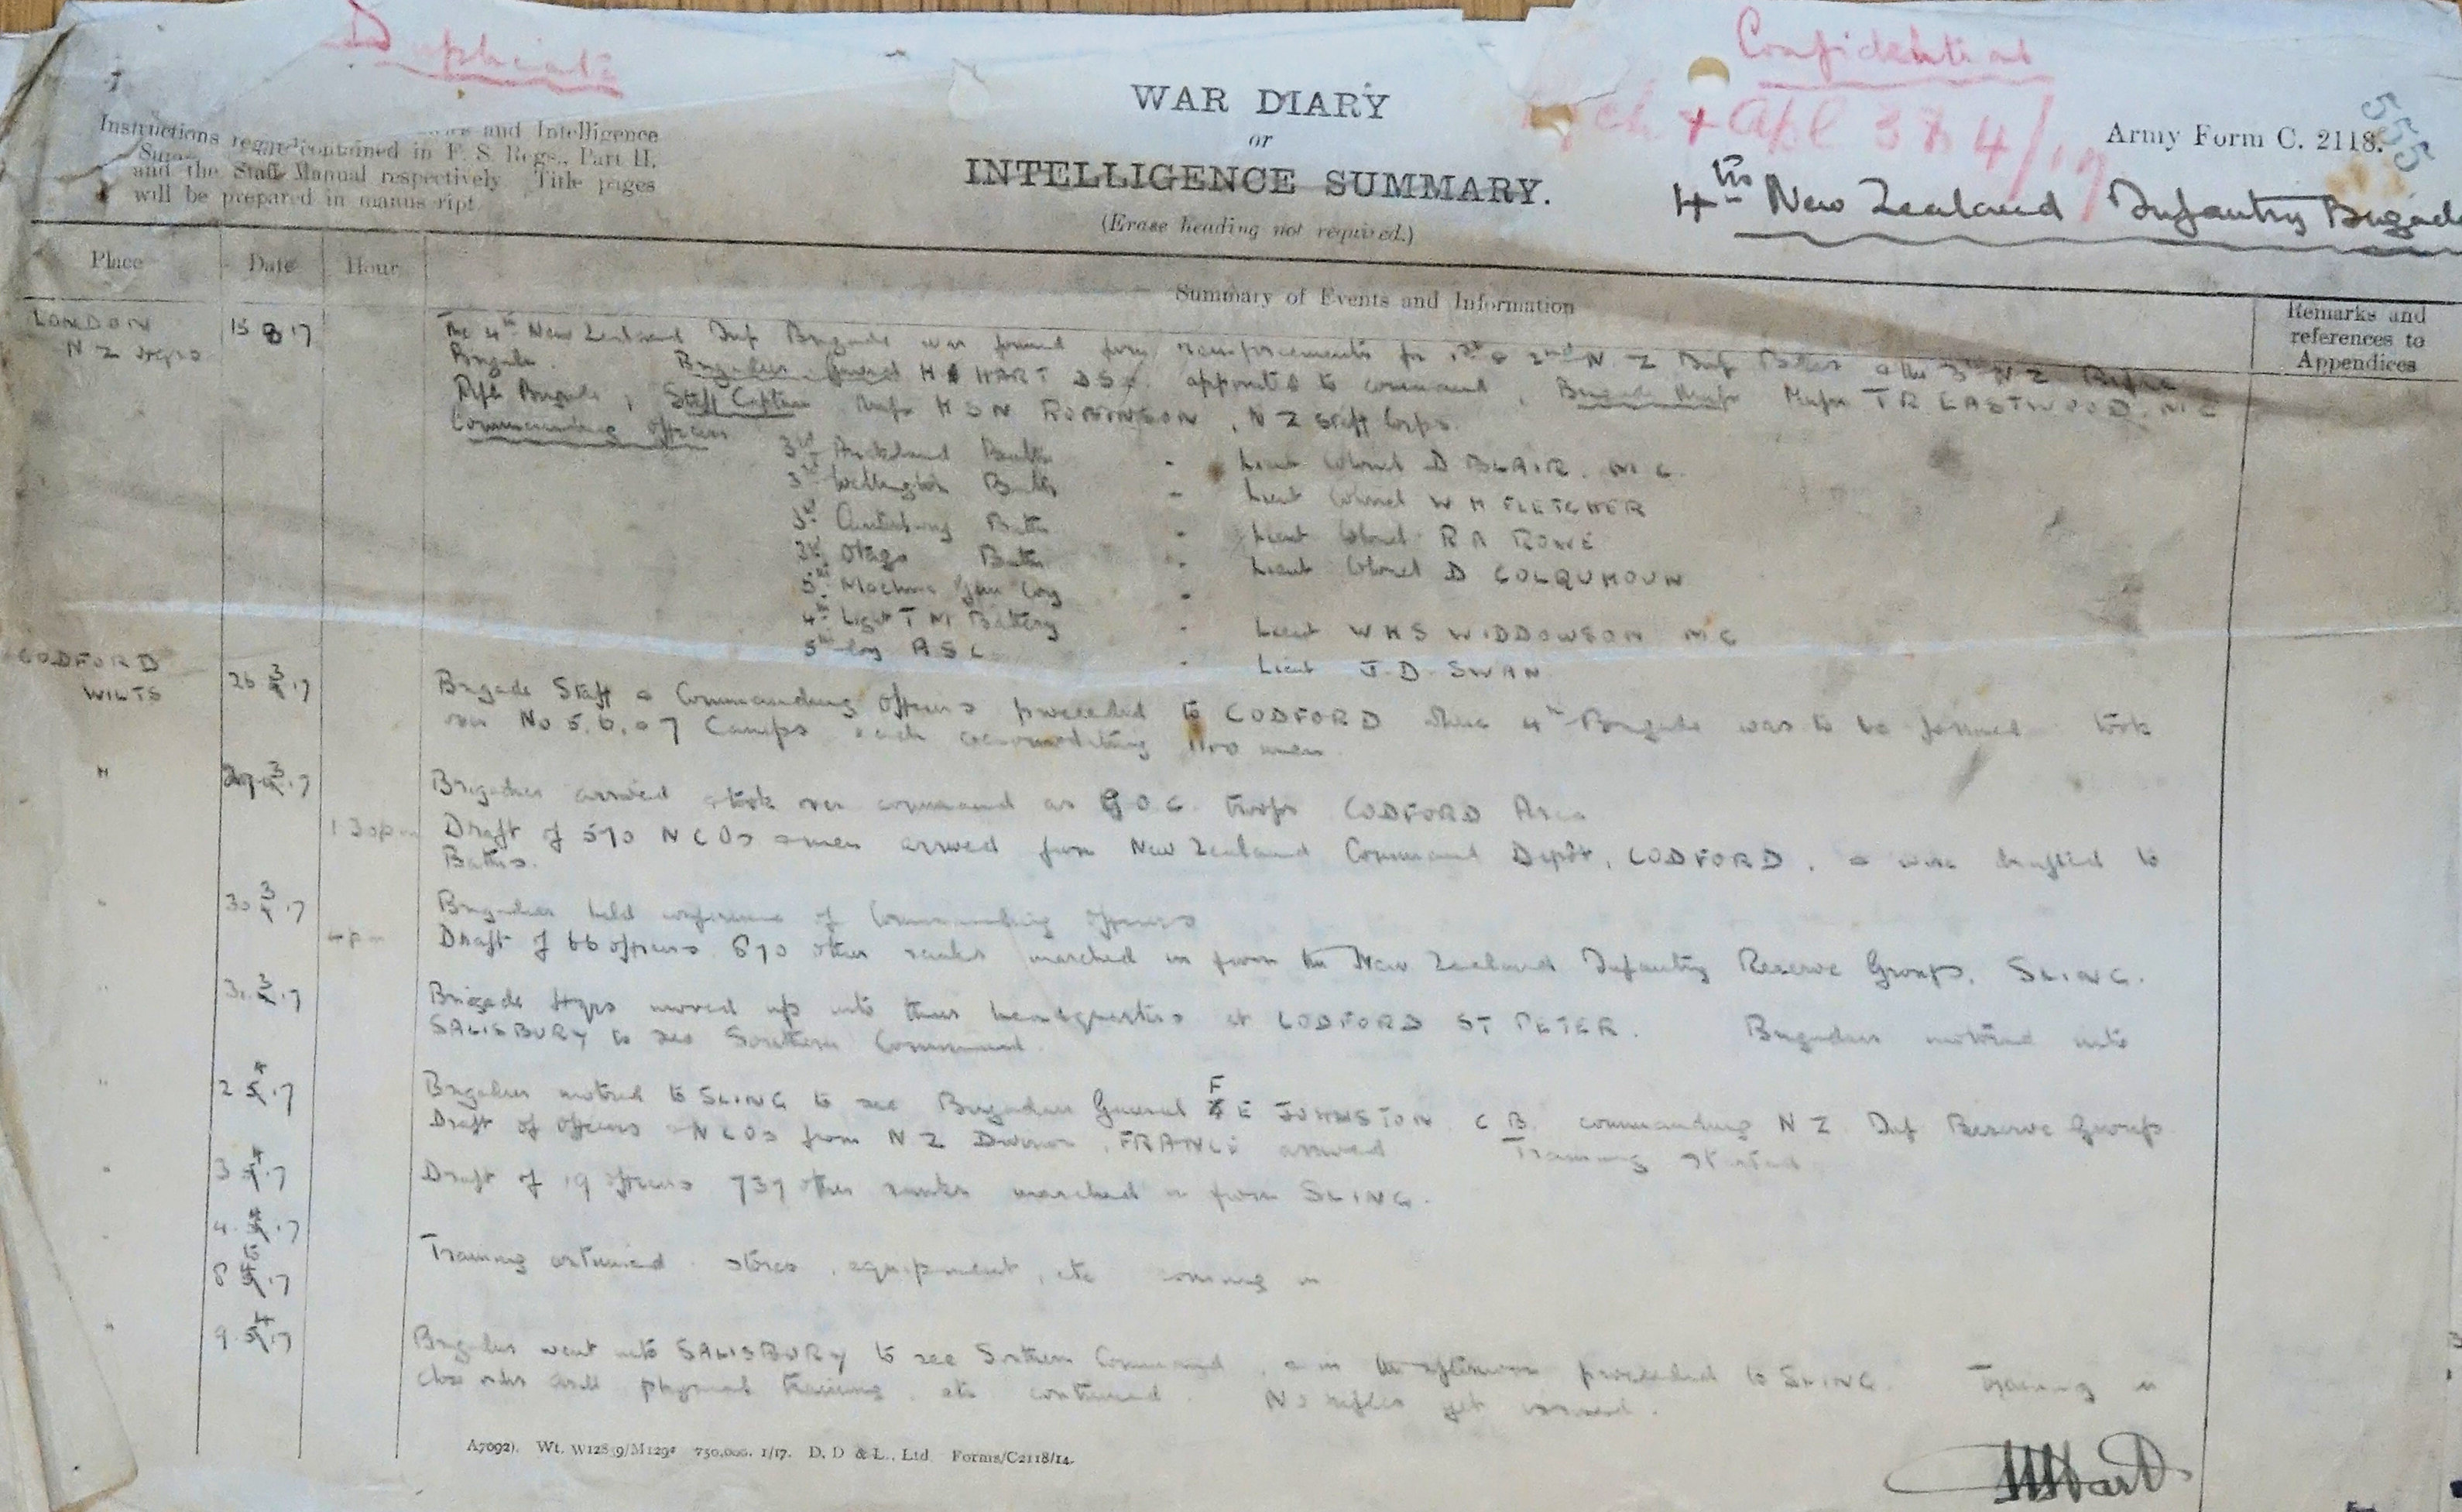 Duplicate
Confidential
+ Apl 3 & 4/17
555
WAR DIARY
or
INTELLIGENCE SUMMARY.
(Erase heading not required.)
Army Form C. 2118.
4th New Zealand Infantry Brigade
Instructions contained in F. S. Regs., Part II,
and Intelligence
and the Staff Manual respectively. Title pages
will be prepared in manuscript
Place Date Hour Summary of Events and Information Remarks and references to Appendices
LONDON 15 17 The 4th New Zealand Inf Brigade was formed from reinforcements for 1st & 2nd N Z Inf Bdes & the 3rd N Z Rifle
N Z Hqrs Brigade. Brigadier General H HART DSO. appointed to command, Brigade Major Major T R EASTWOOD. M C
Rifle Brigade, Staff Captain Major H S N ROBINSON, N Z Staff Corps.
Commanding Officers
3rd Auckland Battn - Lieut Colonel D BLAIR. M C.
3rd Wellington Battn - Lieut Colonel W H FLETCHER
3rd Canterbury Battn - Lieut Colonel R A ROWE
3rd Otago Battn - Lieut Colonel D COLQUHOUN
5th Machine Gun Coy -
4th Light T M Battery - Lieut W H S WIDDOWSON M C
5th Coy A S C - Lieut J. D. SWAN
CODFORD
WILTS 26 3 17 Brigade Staff & Commanding Officers proceeded to CODFORD where 4th Brigade was to be formed took
over No 5, 6, & 7 Camps each accommodating men.
" 29 3 17 Brigadier arrived & took over command as G.O.C. troops CODFORD Area
1 30pm Draft of 570 NCOs & men arrived from New Zealand Command Depôt, CODFORD, & were drafted to
Battns.
" 30 3 17 Brigadier held conference of Commanding Officers
4 pm Draft of 66 officers 870 other ranks marched in from the New Zealand Infantry Reserve Group, SLING.
" 31 3 17 Brigade Hqrs moved up into their headquarters at CODFORD ST PETER. Brigadier motored into
SALISBURY to see Southern Command.
" 2 4 17 Brigadier motored to SLING to see Brigadier General F E JOHNSTON C B. commanding N Z Inf Reserve Group
Draft of officers & NCOs from N Z Division, FRANCE arrived Training started
" 3 4 17 Draft of 19 officers 737 other ranks marched in from SLING.
4 4 17
to
8 4 17 Training continued. stores, equipment, etc coming in
" 9 4 17 Brigadier went into SALISBURY to see Southern Command, & in the afternoon proceeded to SLING. Training in
close order drill physical training, etc continued. No rifles yet issued.
A7092). Wt. W12839/M1293 750,000. 1/17. D. D & L., Ltd. Forms/C2118/14.
H Hart